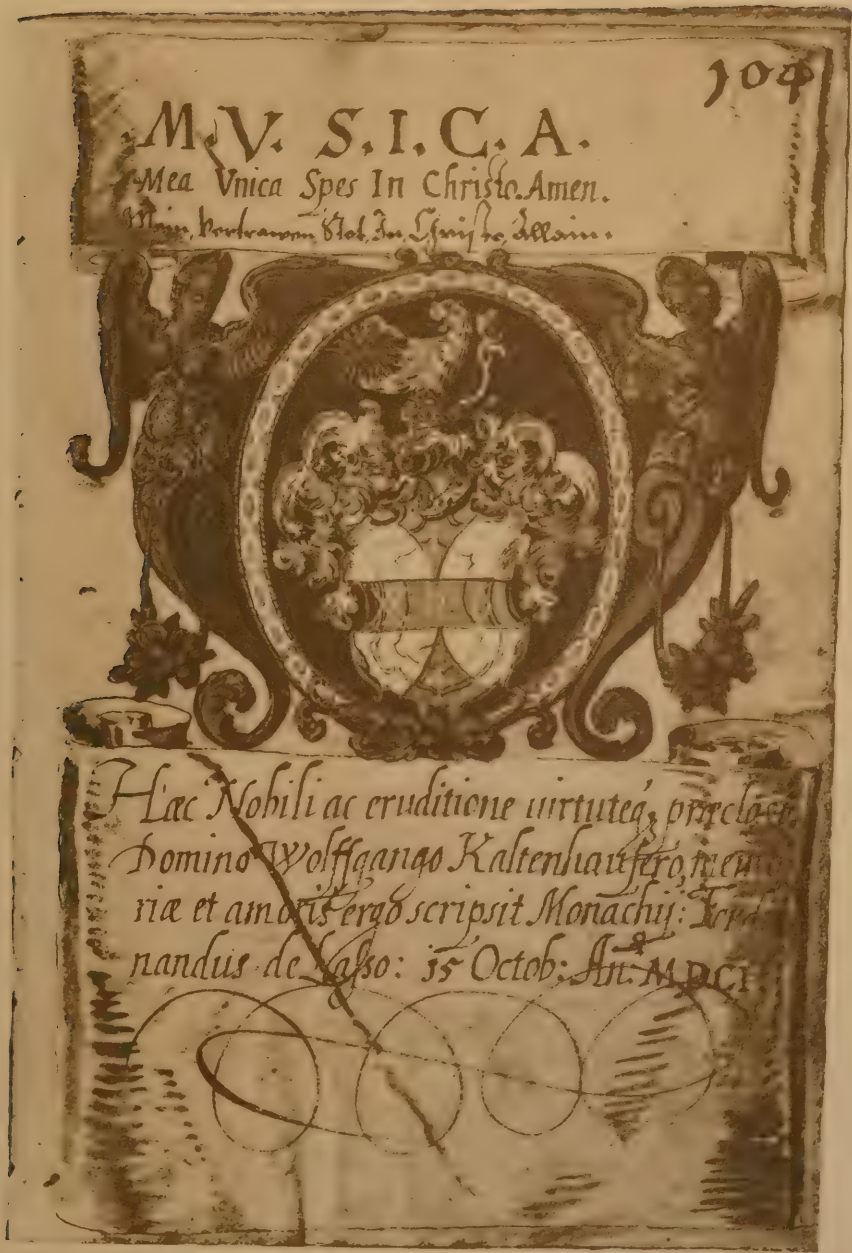 104
M.V. S.I.C.A.
Mea Vnica Spes In Christo. Amen.
Mein, Vertrawen, Stet, In, Christo, Allain.
Hæc Nobili ac eruditione uirtuteq; præclaro
Domino Wolffgango Kaltenhausero, memo
riæ et amoris ergo scripsit Monachij: Ferdi
nandus de Lasso: 15 Octob: An: MDCI.